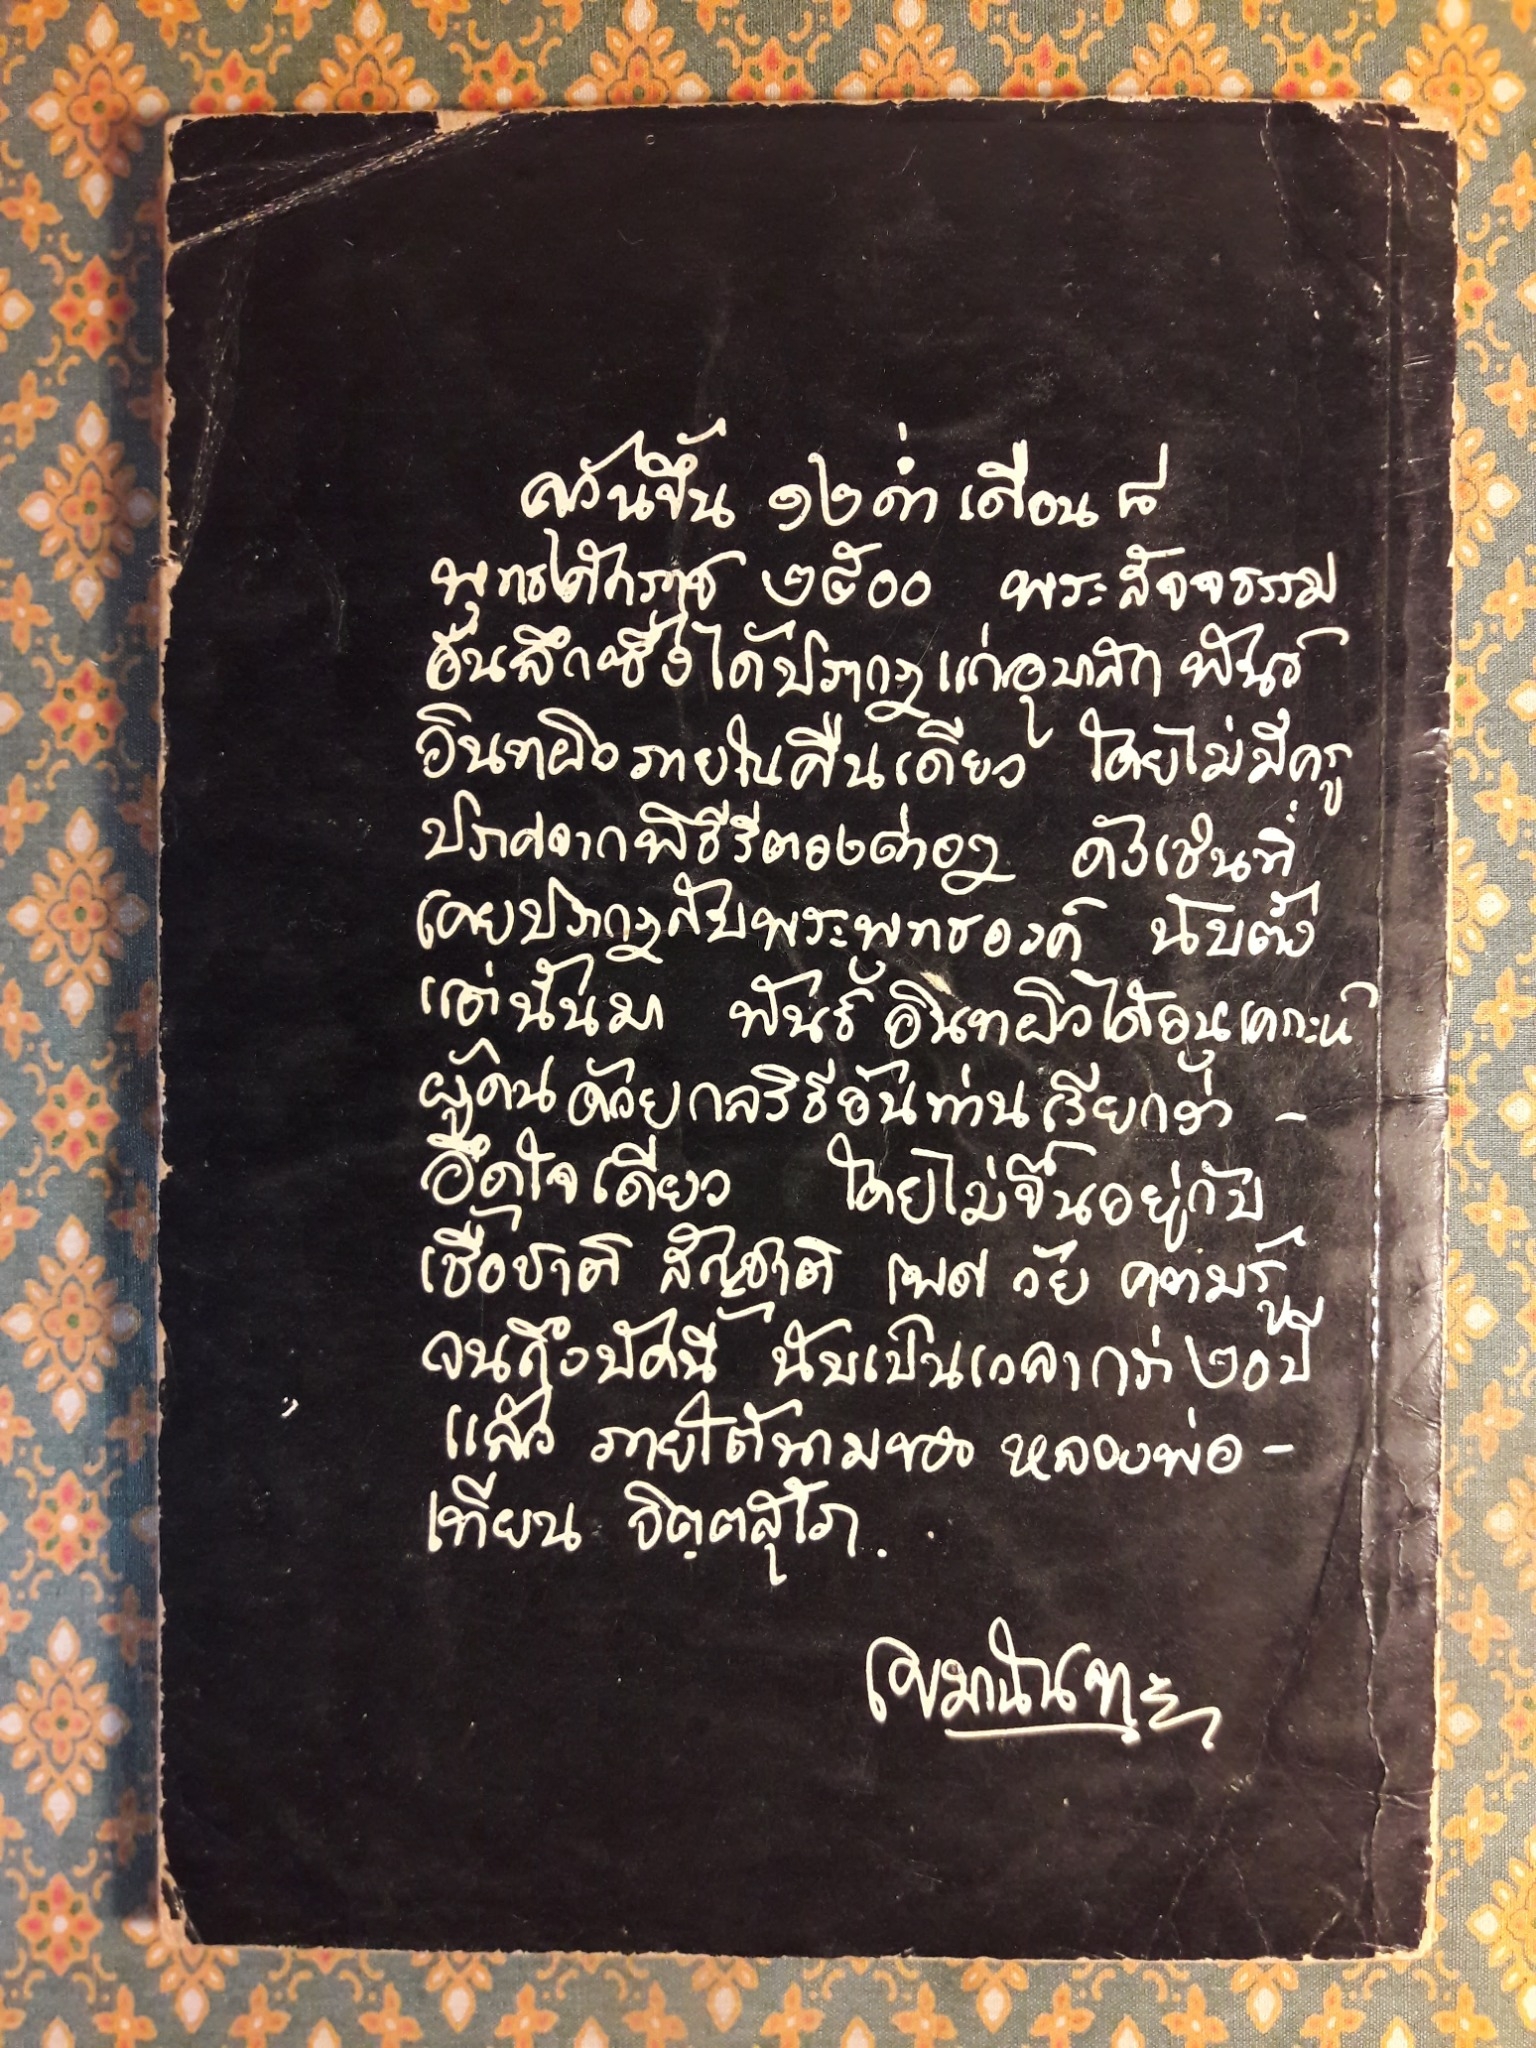 ณวันขึ้น ๑๒ ค่ำ เดือน ๘
พุทธศักราช ๒๕๐๐ พระสัจจธรรม
อันลึกซึ้งได้ปรากฏแก่อุบาสก พันธ์
อินทผิว ภายในคืนเดียว โดยไม่มีครู
ปราศจากพิธีรีตองต่างๆ ดังเช่นที่
เคยปรากฏกับพระพุทธองค์ นับตั้ง
แต่นั้นมา พันธ์ อินทผิว ได้อนุเคราะห์
ผู้คนด้วยกลวิธีอันท่านเรียกว่า -
อึดใจเดียว โดยไม่ขึ้นอยู่กับ
เชื้อชาติ สัญชาติ เพศ วัย ความรู้
จนถึงบัดนี้ นับเป็นเวลากว่า ๒๐ ปี
แล้ว ภายใต้นามของ หลวงพ่อ -
เทียน จิตฺตสุโภ.
เขมานันทะ